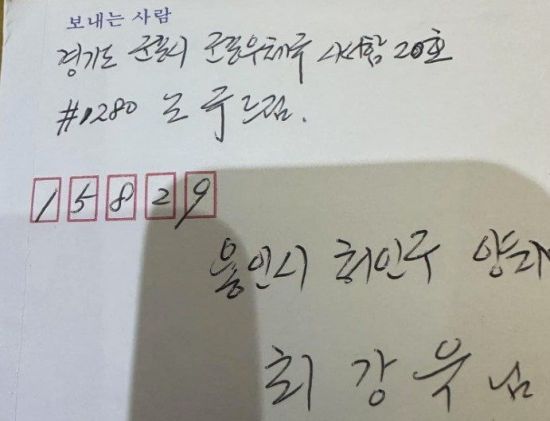 보내는 사람
경기도 군포시 군포우체국 사서함 20호
#1280 노 국 드림.
15829
용인시 처인구 양지
최 강 욱 님